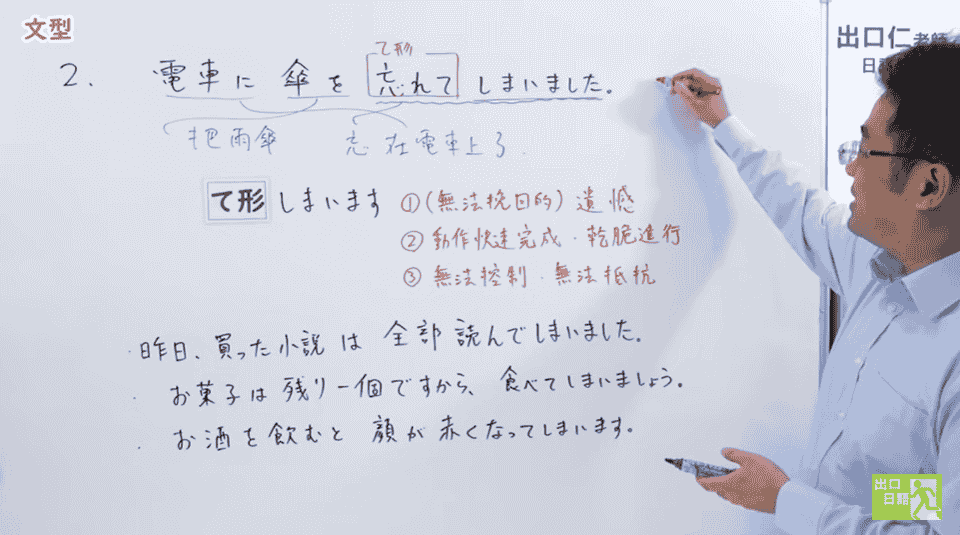 文型
出口仁老師
日
2. 電車に 傘を 忘れて しまいました。
て形
把雨傘 忘在電車上了.
て形 しまいます
①(無法挽回的) 遺憾
②動作快速完成・乾脆進行
③無法控制・無法抵抗
・昨日、買った小説は 全部 読んでしまいました。
・お菓子は 残り一個ですから、食べてしまいましょう。
・お酒を飲むと 顔が 赤くなってしまいます。
出口
日語